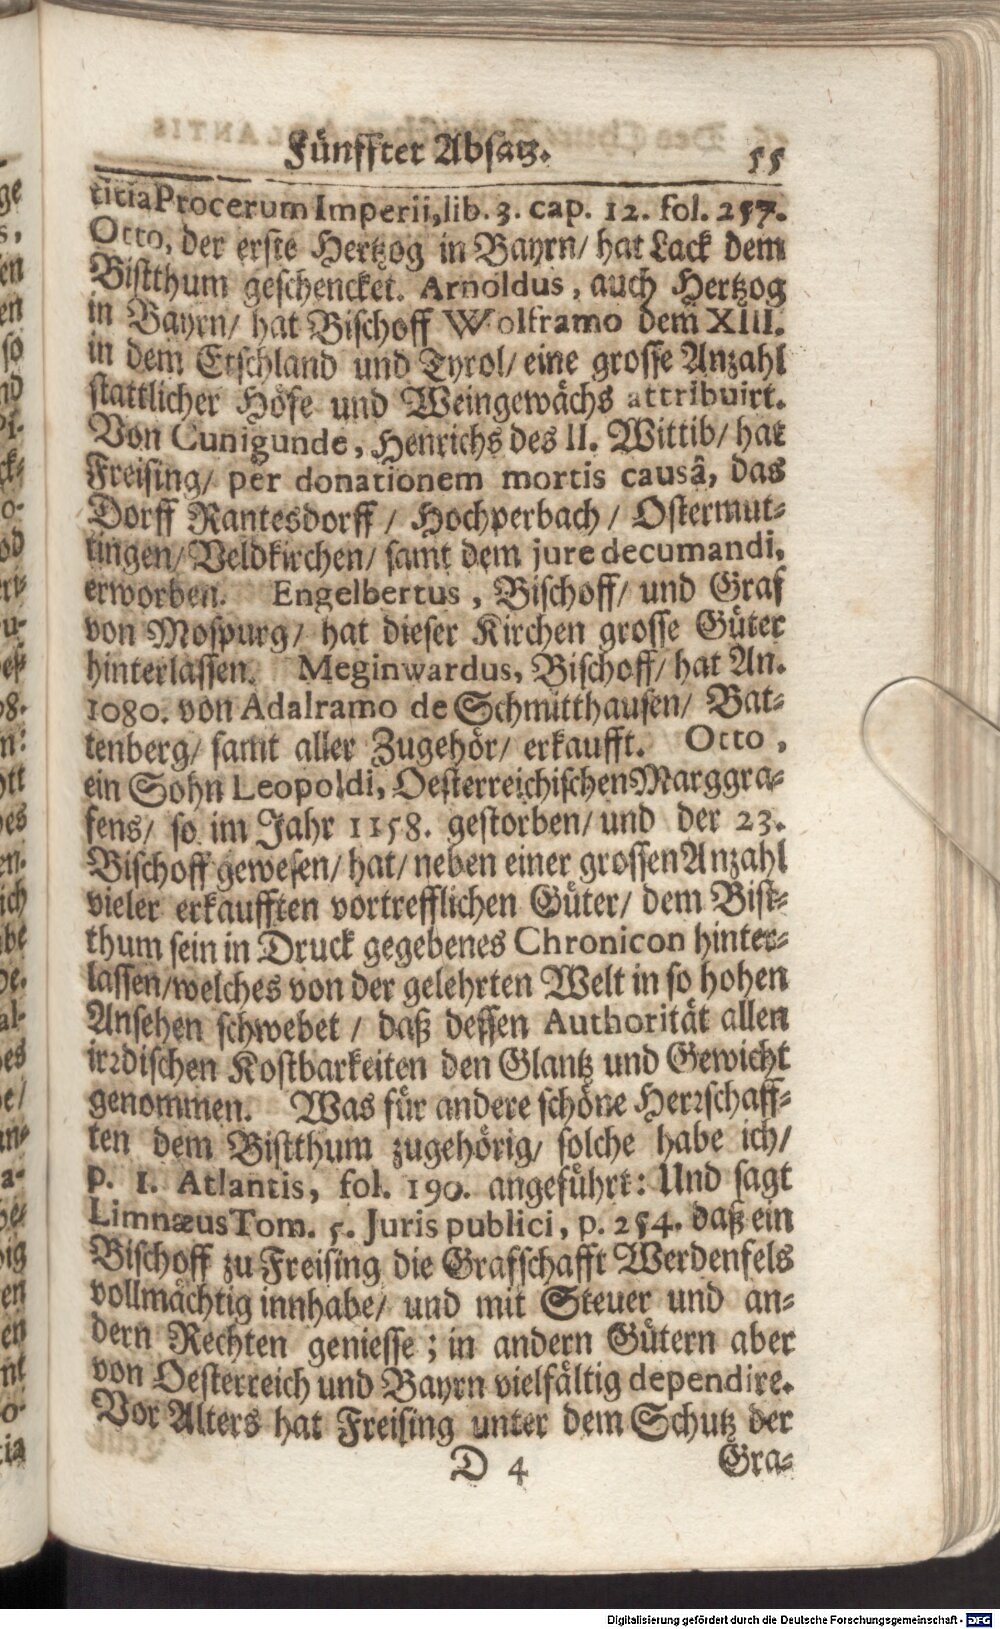 Fünffter Absatz. 55
titia Procerum Imperii, lib. 3. cap. 12. fol. 257.
Otto, der erste Hertzog in Bayrn/ hat Lack dem
Bistthum geschencket. Arnoldus, auch Hertzog
in Bayrn/ hat Bischoff Wolframo dem XIII.
in dem Etschland und Tyrol/ eine grosse Anzahl
stattlicher Höfe und Weingewächs attribuirt.
Von Cunigunde, Henrichs des II. Wittib/ hat
Freising/ per donationem mortis causâ, das
Dorff Rantesdorff / Hochperbach / Ostermut-
tingen/ Veldkirchen/ samt dem jure decumandi,
erworben. Engelbertus, Bischoff/ und Graf
von Mospurg/ hat dieser Kirchen grosse Güter
hinterlassen. Meginwardus, Bischoff/ hat An.
1080. von Adalramo de Schmitthausen/ Bat-
tenberg/ samt aller Zugehör/ erkaufft. Otto,
ein Sohn Leopoldi, Oesterreichischen Marggra-
fens/ so im Jahr 1158. gestorben/ und der 23.
Bischoff gewesen/ hat/ neben einer grossen Anzahl
vieler erkaufften vortrefflichen Güter/ dem Bist-
thum sein in Druck gegebenes Chronicon hinter-
lassen/ welches von der gelehrten Welt in so hohen
Ansehen schwebet / daß dessen Authorität allen
irrdischen Kostbarkeiten den Glantz und Gewicht
genommen. Was für andere schöne Herrschaff-
ten dem Bistthum zugehörig/ solche habe ich/
p. 1. Atlantis, fol. 190. angeführt: Und sagt
Limnæus Tom. 5. Juris publici, p. 254. daß ein
Bischoff zu Freising die Grafschafft Werdenfels
vollmächtig innhabe/ und mit Steuer und an-
dern Rechten geniesse; in andern Gütern aber
von Oesterreich und Bayrn vielfältig dependire.
Vor Alters hat Freising unter dem Schutz der
D 4 Gra-
Digitalisierung gefördert durch die Deutsche Forschungsgemeinschaft - DFG